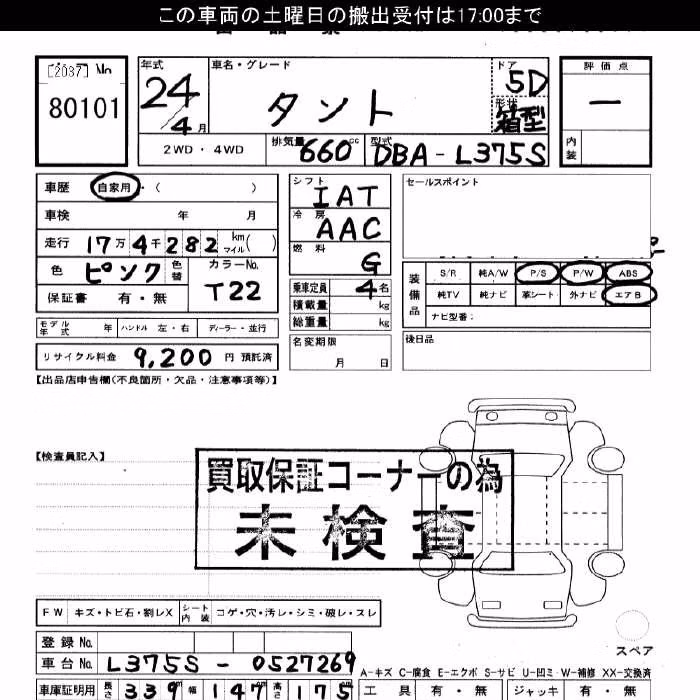 この車両の土曜日の搬出受付は17:00まで
[2037] No
80101
年式 24 4月
車名・グレード タント
ドア 5D
形状 箱型
評価点 一
内装
2WD・4WD
排気量 660cc
型式 DBA-L375S
車歴 自家用・( )
車検 年 月
走行 17万4千282 km マイル( )
色 ピンク 色替 カラーNo. T22
保証書 有・無
シフト IAT
冷房 AAC
燃料 G
乗車定員 4名
積載量 kg
総重量 kg
セールスポイント
装備品 S/R 純A/W P/S P/W ABS
純TV 純ナビ 革シート 外ナビ エアB
ナビ型番:
モデル年式 年 ハンドル 左・右 ディーラー・並行
名変期限 月 日
後日品
リサイクル料金 9,200 円 預託済
【出品店申告欄(不良箇所・欠品・注意事項等)】
【検査員記入】
買取保証コーナーの為
未検査
FW キズ・トビ石・劃レX シート内装 コゲ・穴・汚レ・シミ・破レ・スレ
スペア
登録No.
車台No. L375S-0527269
A-キズ C-腐食 E-エクボ S-サビ U-凹ミ W-補修 XX-交換済
車庫証明用 長さ 339 幅 147 高さ 175
工具 有・無 ジャッキ 有・無